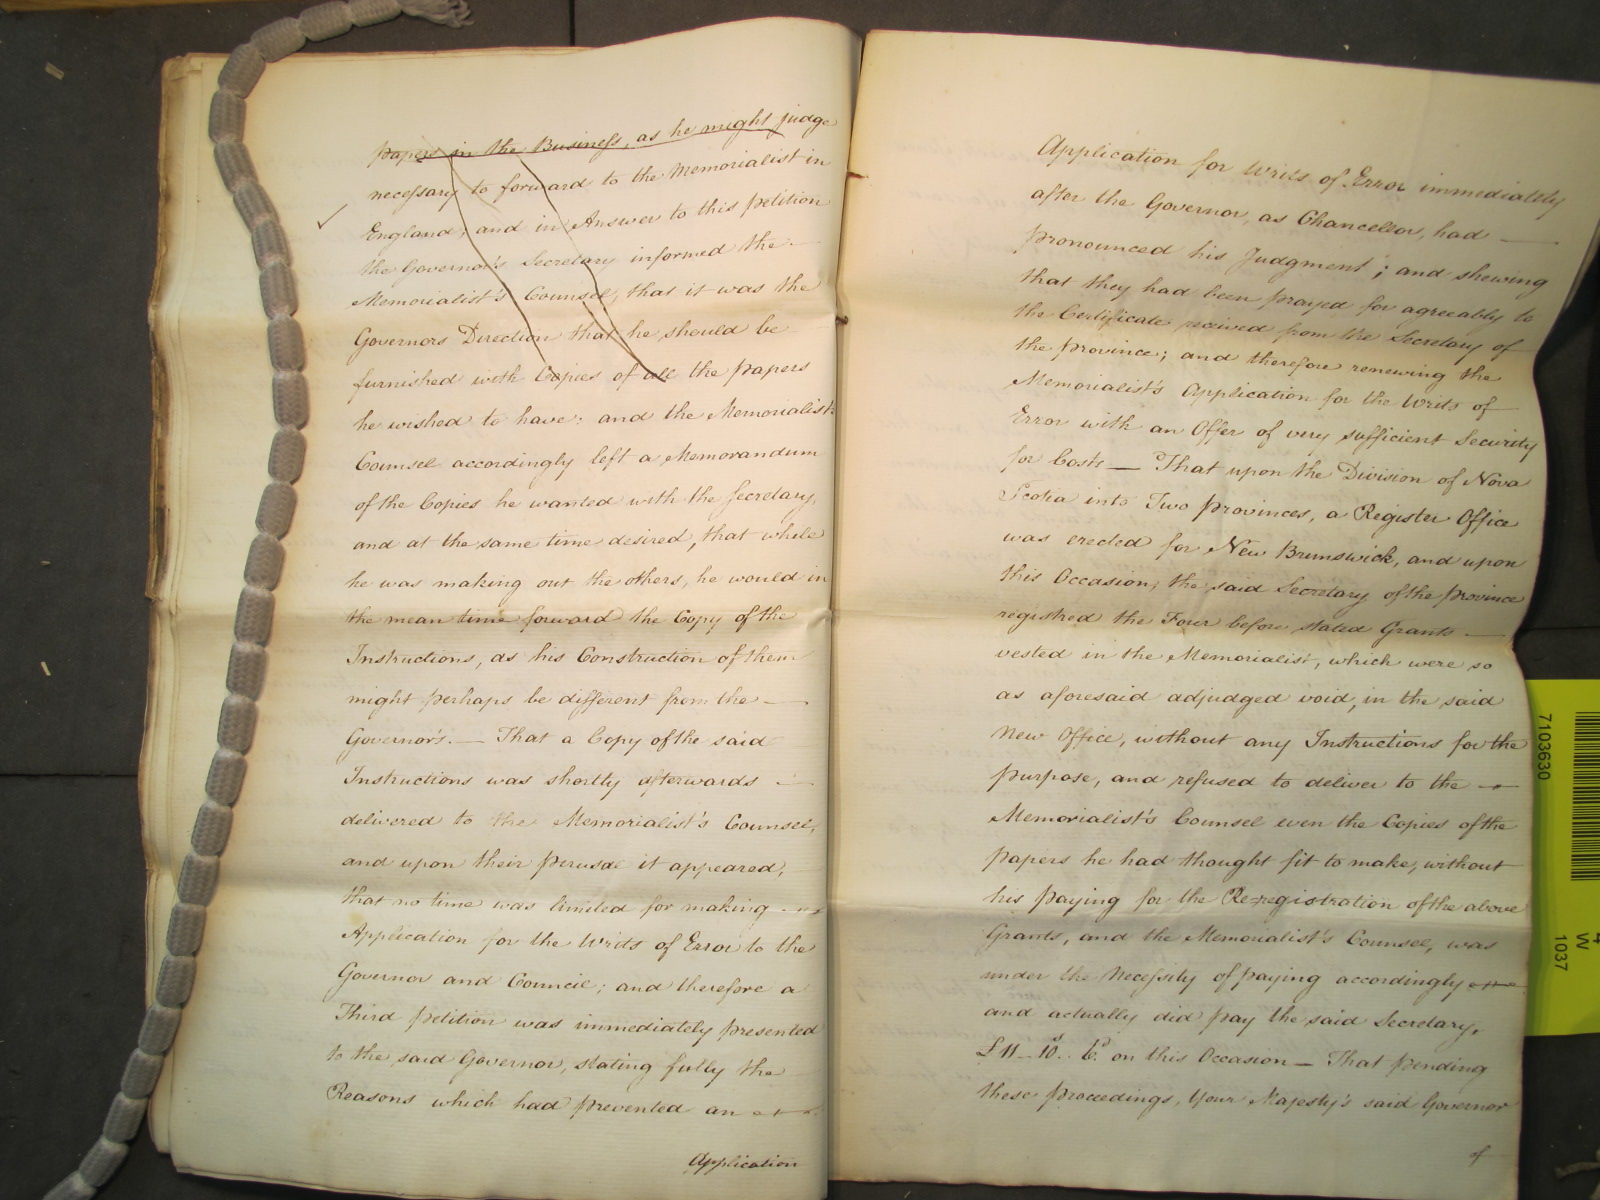 papers in the Business, as he might judge
necessary to forward to the Memorialist in
England; and in Answer to this petition
the Governor's Secretary informed the
Memorialist's Counsel, that it was the
Governors Direction that he should be
furnished with Copies of all the papers
he wished to have; and the Memorialist's
Counsel accordingly left a Memorandum
of the Copies he wanted with the Secretary,
and at the same time desired, that while
he was making out the others, he would in
the mean time forward the Copy of the
Instructions, as his Construction of them
might perhaps be different from the —
Governor's. — That a Copy of the said
Instructions was shortly afterwards —
delivered to the Memorialist's Counsel,
and upon their perusal it appeared,
that no time was limited for making
Application for the Writs of Error to the
Governor and Council; and therefore a
Third petition was immediately presented
to the said Governor, stating fully the
Reasons which had prevented an
Application
Application for Writs of Error immediately
after the Governor, as Chancellor, had —
pronounced his Judgment; and shewing
that they had been prayed for agreeably to
the Certificate received from the Secretary of
the province; and therefore renewing the
Memorialist's Application for the Writs of
Error with an Offer of very sufficient Security
for Costs — That upon the Division of Nova
Scotia into Two provinces, a Register Office
was erected for New Brunswick, and upon
this Occasion, the said Secretary of the province
registred the Four before stated Grants —
vested in the Memorialist, which were so
as aforesaid adjudged void, in the said
New Office, without any Instructions for the
purpose, and refused to deliver to the —
Memorialist's Counsel even the Copies of the
papers he had thought fit to make, without
his paying for the Re=registration of the above
Grants, and the Memorialist's Counsel, was
under the Necessity of paying accordingly
and actually did pay the said Secretary,
£11 – 10s.. 6d on this Occasion — That pending
these proceedings, Your Majesty's said Governor
of
7103630
4
W
1037